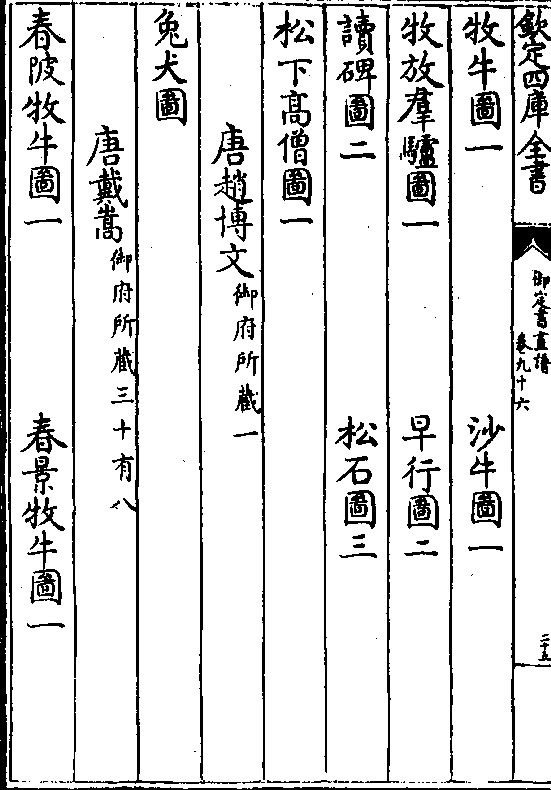 欽定四庫全書
御定書畫譜
卷九十六
二十五
牧牛圖一 沙牛圖一
牧放羣驢圖一 早行圖二
讀碑圖二 松石圖三
松下高僧圖一
唐趙博文御府所藏一
兔犬圖
唐戴嵩御府所藏三十有八
春陂牧牛圖一 春景牧牛圖一